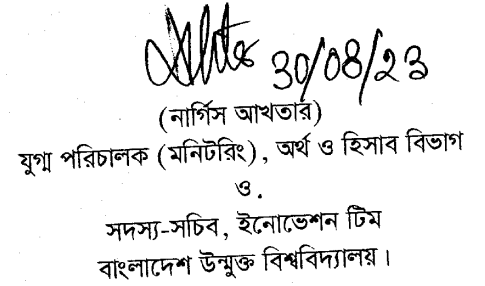 30/08/23
(নার্গিস আখতার)
যুগ্ম পরিচালক (মনিটরিং), অর্থ ও হিসাব বিভাগ
ও.
সদস্য-সচিব, ইনোভেশন টিম
বাংলাদেশ উন্মুক্ত বিশ্ববিদ্যালয়।